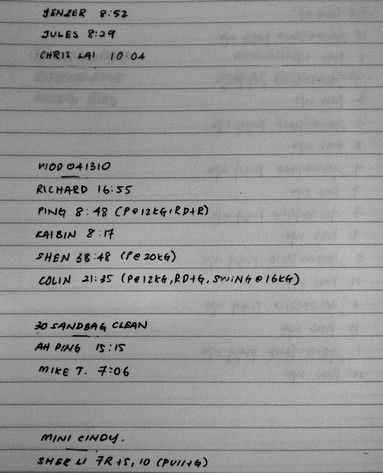 YENZER 8:52
JULES 8:29
CHRIS LAI 10:04
WOD 041310
RICHARD 16:55
PING 8:48 (P@12KG, RD+R)
KAIBIN 8:17
SHEN 38:48 (P@20KG)
COLIN 21:35 (P@12KG, RD+G, SWING @16KG)
30 SANDBAG CLEAN
AH PING 15:15
MIKE T. 7:06
MINI CINDY.
SHER LI 7R+5, 10 (PU11+G)